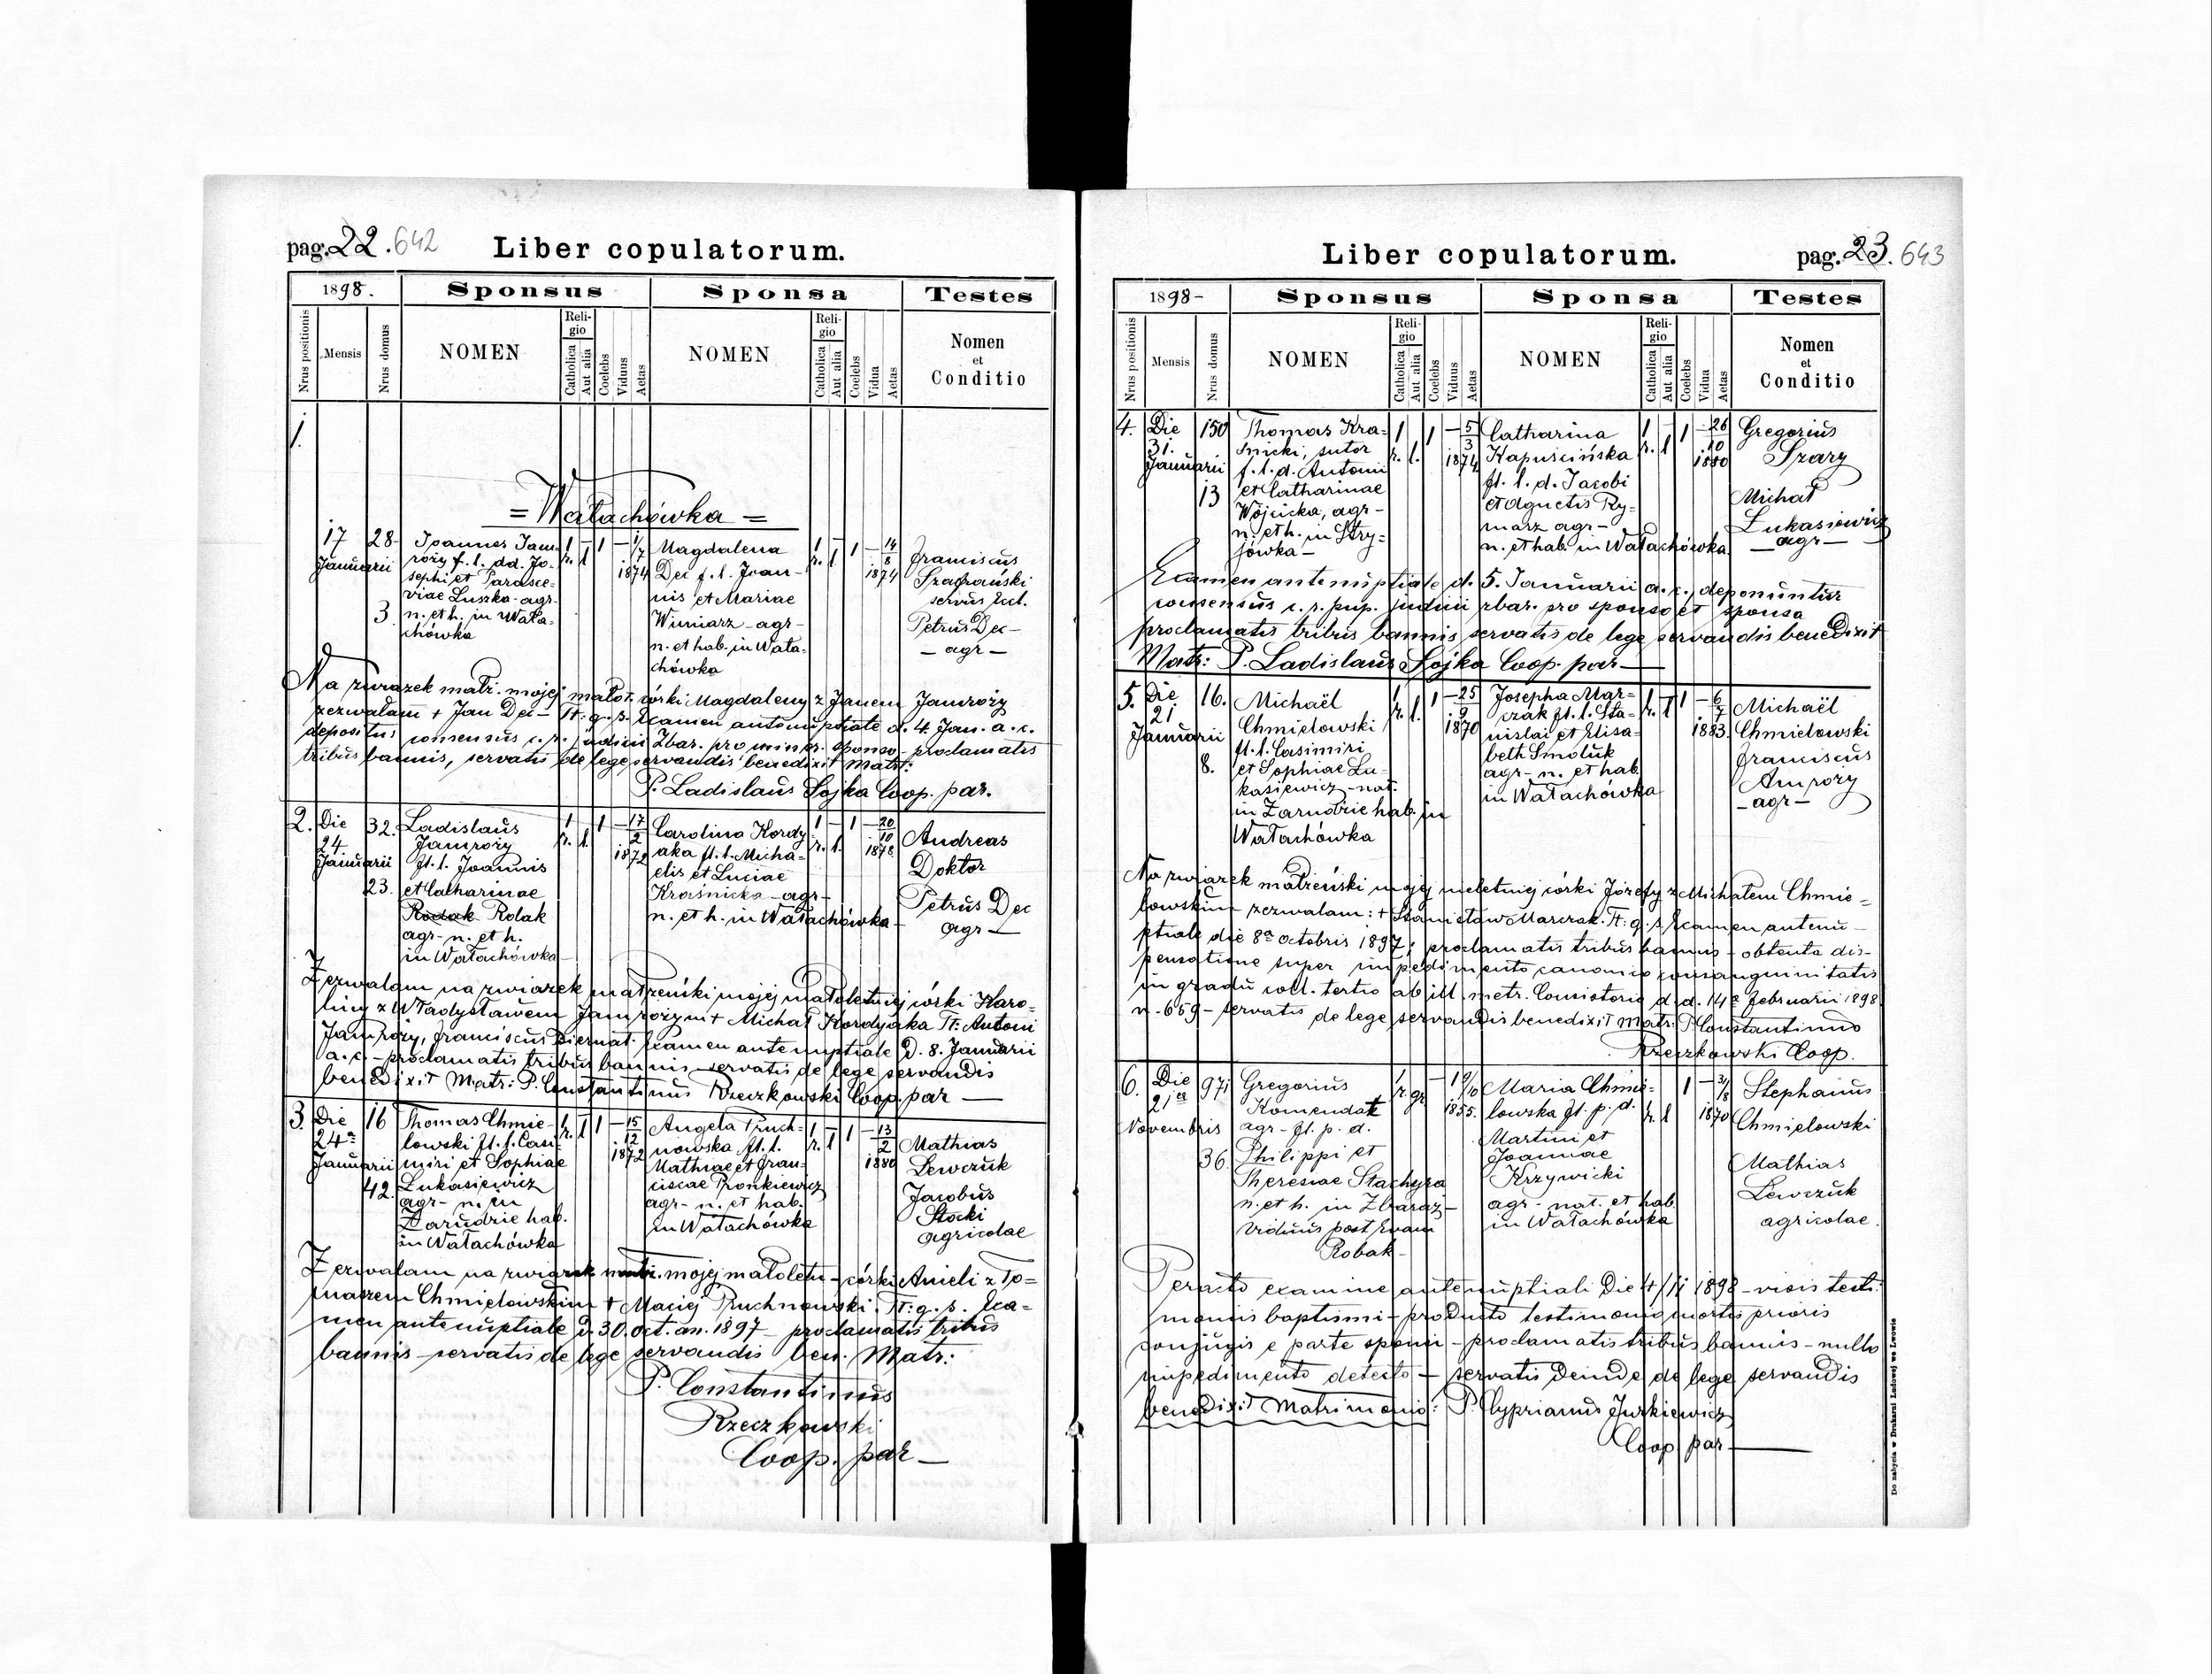 pag. 22. 642
Liber copulatorum.
1898.
Sponsus
Sponsa
Testes
Nrus positionis
Mensis
Nrus domus
NOMEN
Religio
Catholica
Aut alia
Coelebs
Viduus
Aetas
NOMEN
Religio
Catholica
Aut alia
Coelebs
Vidua
Aetas
Nomen
et
Conditio
1.
= Wałachówka =
17 Januarii
28
3
Joannes Jam-
roży f. l. dd. Jo-
sephi et Parasce-
viae Luszka - agr.
n. et h. in Wała-
chówka
1 r. - l 1 - 1/7 1874
Magdalena
Dec f. l. Joan-
nis et Mariae
Winiarz - agr -
n. et hab. in Wała-
chówka
1 r. - l 1 - 14/8 1874
Franciscus
Szafrański
servus Eccl.
Petrus Dec -
- agr -
Na związek małż. mojej małot. córki Magdaleny z Janem Jamroży
zezwalam + Jan Dec - Tt: q. s. Examen antenuptiale d. 4. Jan. a. c.
depositus consensus c. r. judicii Zbar. pro minor. sponso - proclamatis
tribus bannis, servatis de lege servandis benedixit Matr:
P. Ladislaus Sojka Coop. par.
2. Die 24 Januarii
32.
23.
Ladislaus
Jamroży
fl. l. Joannis
et Catharinae
Rodak Rolak
agr - n. et h.
in Wałachówka -
1 r. l. 1 - 17/2 1872
Carolina Kordy
aka fl. l. Micha-
elis et Luciae
Kraśnicka - agr -
n. et h. in Wałachówka -
1 r. - l. 1 - 20/10 1878
Andreas
Doktor
Petrus Dec
agr -
Zezwalam na związek małżeński mojej małoletniej córki Karo-
liny z Władysławem Jamrożym + Michał Kordyaka Tt: Antoni
Jamroży, Franciscus Biernat. Examen antenuptiale D. 8. Januarii
a. c. - proclamatis tribus bannis - servatis de lege servandis
benedixit Matr: P. Constantinus Rzeczkowski Coop. par -
3. Die 24a Januarii
16
42.
Thomas Chmie-
lowski fl. l. Casi-
miri et Sophiae
Łukasiewicz
agr - n. in
Zarudzie hab.
in Wałachówka
1 r. - l 1 - 15/12 1872
Angela Pruch-
nowska fl. l.
Mathiae et Fran-
ciscae Pronkiewicz
agr - n. et hab.
in Wałachówka
1 r. - l 1 - 13/2 1880
Mathias
Lewczuk
Jacobus
Stocki
agricolae
Zezwalam na związek małż. mojej małoletn - córki Anieli z To-
maszem Chmielowskim + Maciej Pruchnowski. Tt: q. s. Exa-
men antenuptiale d. 30. oct. an. 1897 - proclamatis tribus
bannis - servatis de lege servandis ben. Matr:
P. Constantinus
Rzeczkowski
Coop. par -
Liber copulatorum.
pag. 23. 643
1898 -
Sponsus
Sponsa
Testes
Nrus positionis
Mensis
Nrus domus
NOMEN
Religio
Catholica
Aut alia
Coelebs
Viduus
Aetas
NOMEN
Religio
Catholica
Aut alia
Coelebs
Vidua
Aetas
Nomen
et
Conditio
4. Die 31. Januarii
150
13
Thomas Kra-
śnicki, sutor
f. l. d. Antonii
et Catharinae
Wójcicka, agr -
n. et h. in Stry-
jówka -
1 r. l. 1 - 5/3 1874
Catharina
Kapuścińska
fl. l. d. Jacobi
et Agnetis Ry-
marz agr -
n. et hab. in Wałachówka
1 r. - l 1 - 26/10 1880
Gregorius
Szary
Michał
Łukasiewicz
- agr -
Examen antenuptiale d. 5. Januarii a. c., deponuntur
consensus c. r. pup. judicii zbar. pro sponso et sponsa
proclamatis tribus bannis servatis de lege servandis benedixit
Matr: P. Ladislaus Sojka Coop. par -
5. Die 21 Januarii
16.
8.
Michaël
Chmielowski
fl. l. Casimiri
et Sophiae Łu-
kasiewicz - nat.
in Zarudzie hab. in
Wałachówka
1 r. - l. 1 - 25/9 1870
Josepha Mar-
czak fl. l. Sta-
nislai et Elisa-
beth Smoluk
agr - n. et hab
in Wałachówka
1 r. - l 1 - 6/7 1883.
Michaël
Chmielowski
Franciscus
Amroży
- agr -
Na związek małżeński mojej nieletniej córki Józefy z Michałem Chmie-
lowskim zezwalam: + Stanisław Marczak. Tt: q. s. Examen antenu-
ptiale die 8a octobris 1897; proclamatis tribus bannis - obtenta dis-
pensatione super impedimento canonico consanguinitatis
in gradu coll. tertio ab ill. metr. Consistorio d. d. 14a februarii 1898
n. 659 - servatis de lege servandis benedixit Matr: P. Constantinus
Rzeczkowski Coop.
6. Die 21ca Novembris
971
36.
Gregorius
Komendat
agr - fl. p. d.
Philippi et
Theresiae Stachyra
n. et h. in Zbaraż -
viduus post Evam
Robak -
1 r. gr - 1 9/10 1855.
Maria Chmie-
lowska fl. p. d.
Martini et
Joannae
Krzywicki
agr - nat. et hab
in Wałachówka
r. l 1 - 31/8 1870
Stephanus
Chmielowski
Mathias
Lewczuk
agricolae.
Peracto examine antenuptiali Die 4/11 1898 - visis testi-
moniis baptismi - producto testimonio mortis prioris
conjugis e parte sponsi - proclamatis tribus bannis - nullo
impedimento detecto - servatis deinde de lege servandis
benedixit Matrimonio: P. Cyprianus Jurkiewicz
Coop. par -
Do nabycia w Drukarni Ludowej we Lwowie